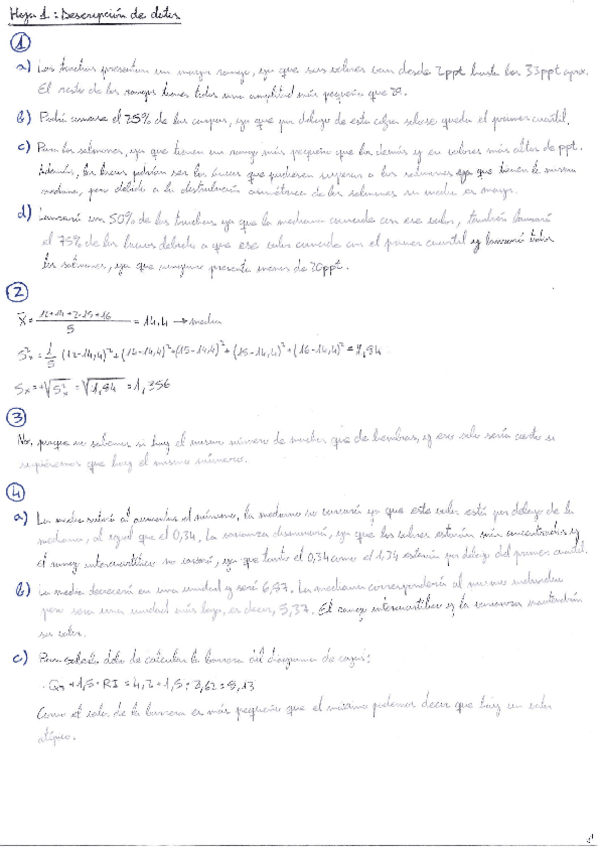 Hoja 1: Descripción de datos
1
a) Las truchas presentan un mayor rango, ya que sus valores van desde 2ppt hasta los 33ppt aprox.
El resto de los rangos tienen todos una amplitud más pequeña que
b) Podrá el 25% de las carpas, ya que por debajo de esta cifra queda el primer cuartil.
c) Para los salmones, ya que tienen un rango más pequeño que los demás y en valores más altos de ppt.
Además, los lucios podrían ser los únicos que pudieran superar a los salmones ya que tienen la misma
mediana, pero debido a la distribución asimétrica de los salmones su media es mayor.
d) Lanzará un 50% de las truchas ya que la mediana coincide con ese valor, también lanzará
el 75% de los lucios debido a que ese valor coincide con el primer cuartil y lanzará todos
los salmones, ya que ninguno presenta menos de 20ppt.
2
x̄ = (12+14+2·15+16)/5 = 14,4 → media
S²x = 1/5 (12-14,4)²+(14-14,4)²+(15-14,4)²+(15-14,4)²+(16-14,4)² = 1,84
Sx = +√S²x = √1,84 = 1,356
3
No, porque no sabemos si hay el mismo número de que de hombres, y ese valor sería cierto si
supiéramos que hay el mismo número.
4
a) La media subirá al aumentar el número, la mediana no variará ya que este valor está por debajo de la
mediana, al igual que el 0,34. La varianza disminuirá, ya que los valores estarán más concentrados y
el rango intercuartílico no variará, ya que tanto el 0,34 como el 1,34 estarían por debajo del primer cuartil.
b) La media decrecerá en una unidad y será 6,87. La mediana corresponderá al mismo individuo
pero será una unidad más baja, es decir, 5,37. El rango intercuartílico y la varianza mantendrán
su valor.
c) Para debo de calcular la barrera del diagrama de cajas:
· Q3 + 1,5 · RI = 4,2 + 1,5 · 2,62 = 8,13
Como el valor de la barrera es más pequeño que el máximo podemos decir que hay un valor
atípico.